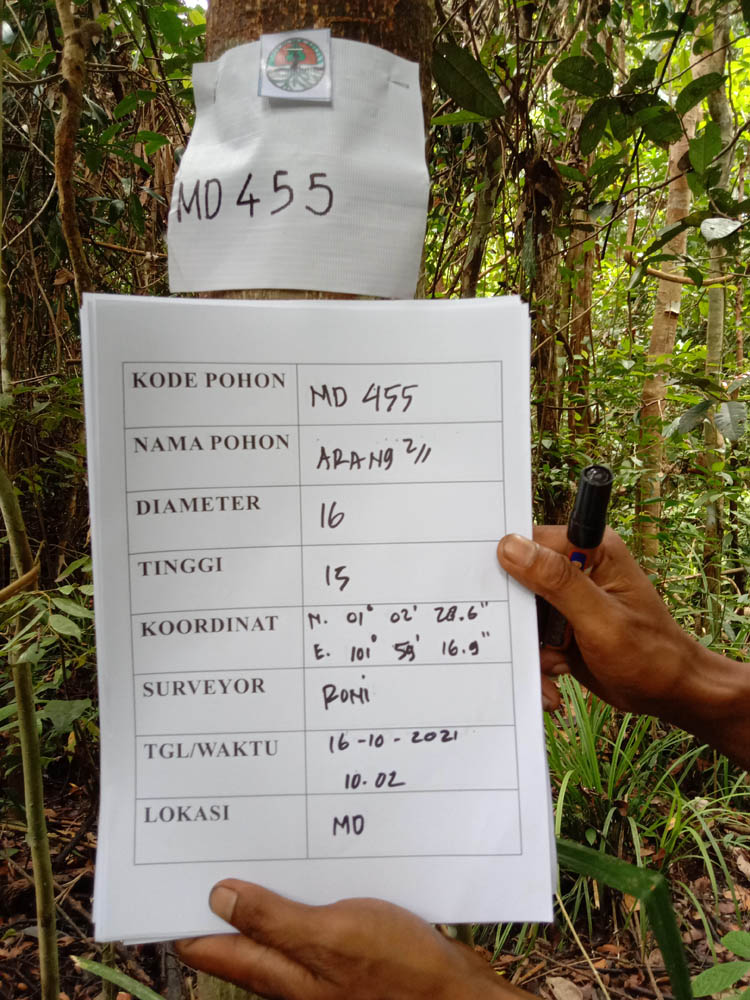 MD 455
KODE POHON MD 455
NAMA POHON ARANG 2//
DIAMETER 16
TINGGI 15
KOORDINAT N. 01° 02' 28.6"
E. 101° 59' 16.9"
SURVEYOR RONI
TGL/WAKTU 16-10-2021
10.02
LOKASI MD